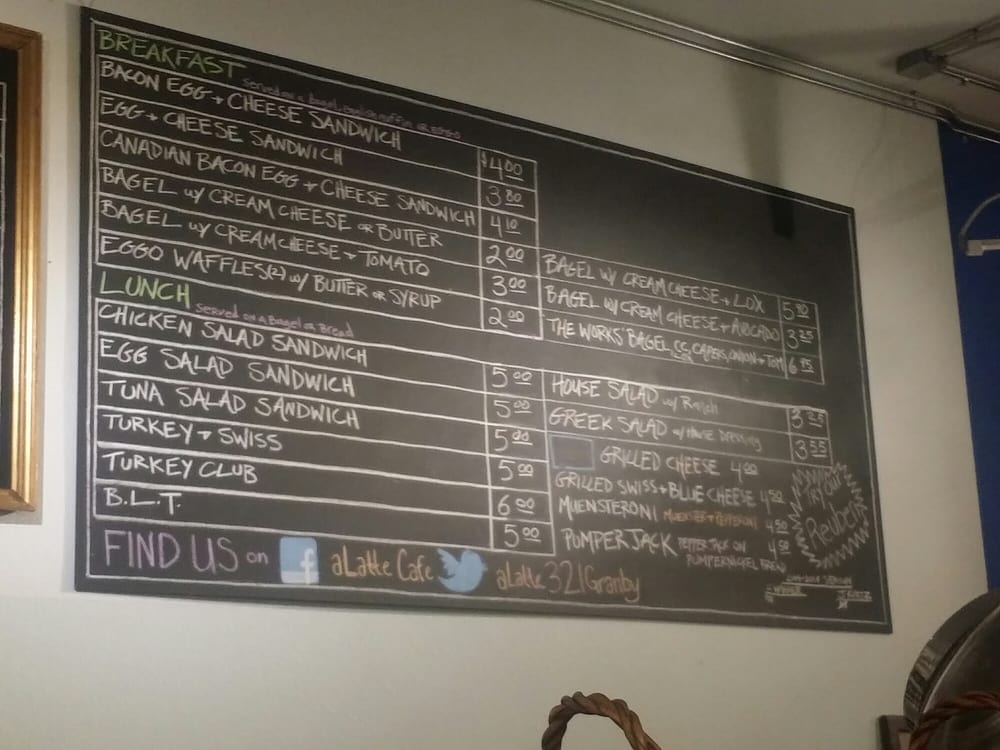 BREAKFAST Served on a bagel, english muffin or EGGO
BACON EGG + CHEESE SANDWICH $4.00
EGG + CHEESE SANDWICH 3.80
CANADIAN BACON EGG + CHEESE SANDWICH 4.10
BAGEL w/ CREAM CHEESE OR BUTTER 2.00
BAGEL w/ CREAM CHEESE + TOMATO 3.00
EGGO WAFFLES(2) w/ BUTTER OR SYRUP 2.00
BAGEL w/ CREAM CHEESE + LOX 5.90
BAGEL w/ CREAM CHEESE + AVOCADO 3.25
THE WORKS BAGEL CC, CAPERS, ONION + TOM 6.95
LUNCH Served on a Bagel or Bread
CHICKEN SALAD SANDWICH 5.00
EGG SALAD SANDWICH 5.00
TUNA SALAD SANDWICH 5.00
TURKEY + SWISS 5.00
TURKEY CLUB 6.00
B.L.T. 5.00
HOUSE SALAD w/ Ranch 3.25
GREEK SALAD w/ House Dressing 3.55
GRILLED CHEESE 4.00
GRILLED SWISS + BLUE CHEESE 4.50
MUENSTERONI MUENSTER + PEPPERONI 4.50
PUMPERJACK PEPPER JACK ON 4.50
PUMPERNICKEL BREAD
TRY OUR
Reuben
FIND US on f aLatte Cafe aLatte321Granby